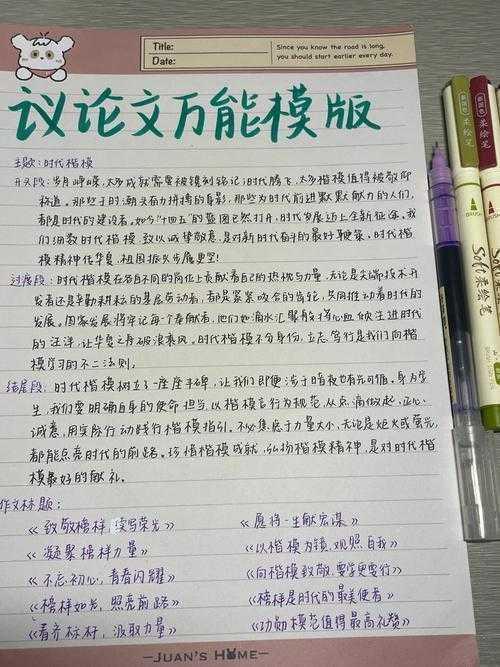 Title:
Date:
Since you know the road is long,
you should start earlier every day.
议论文万能模版
主题：时代楷模
开头段：岁月峥嵘，太多成就需要被镌刻铭记；时代腾飞，太多楷模值得被敬仰
称道。那些子时,朝夕奋力拼搏的身影，那些为时代前进默默献力的人们，
都是时代的建设者。如今"十四五"的蓝图已然打开，时代发展迈上全新征途。我
们细数时代楷模，致以诚挚敬意，是对新时代奋斗的最好鞭策，时代楷
模精神化华夏，祖国振兴步履更坚!
过渡段：时代楷模在各自不同的岗位上贡献着自己的热忱与力量，无论是尖端技术开
发者还是辛勤耕耘的基层劳动者，都是紧紧咬合的齿轮，共同推动着时代的
发展。国家发展将牢记每个奉献者，他们如滴水汇聚般将心血倾注进时代
的汪洋，让华夏之舟破浪乘风。时代楷模不分身份，立志笃行是我们向楷
模学习的不二法则。
结尾段：时代楷模树立了一座座丰碑，让我们即便涉于暗夜也有光可循。身为学
生，我们要明确自身的使命担当，以楷模言行为规范，从点滴做起，正心
诚意，用实际行动践行楷模指引。不必焦虑于力量大小，无论是炬火或萤光，
都能点亮时代的前路。珍惜楷模成就，弘扬楷模精神，是对时代楷
模最好的献礼。
作文标题：
《致敬榜样，续写荣光》
《愿将一生献宏谋》
《凝聚榜样力量》
《以楷模为镜，观照自我》
《不忘初心，青春闪耀》
《向楷模致敬，要学更要行》
《榜样如光，照亮前路》
《榜样是时代的最美使者》
《看齐标杆，汲取力量》
《功勋模范值得最高礼赞》
JUAN'S HOME
柔绘笔
柔绘笔
BRUSH
BRUSH
Soft柔绘笔